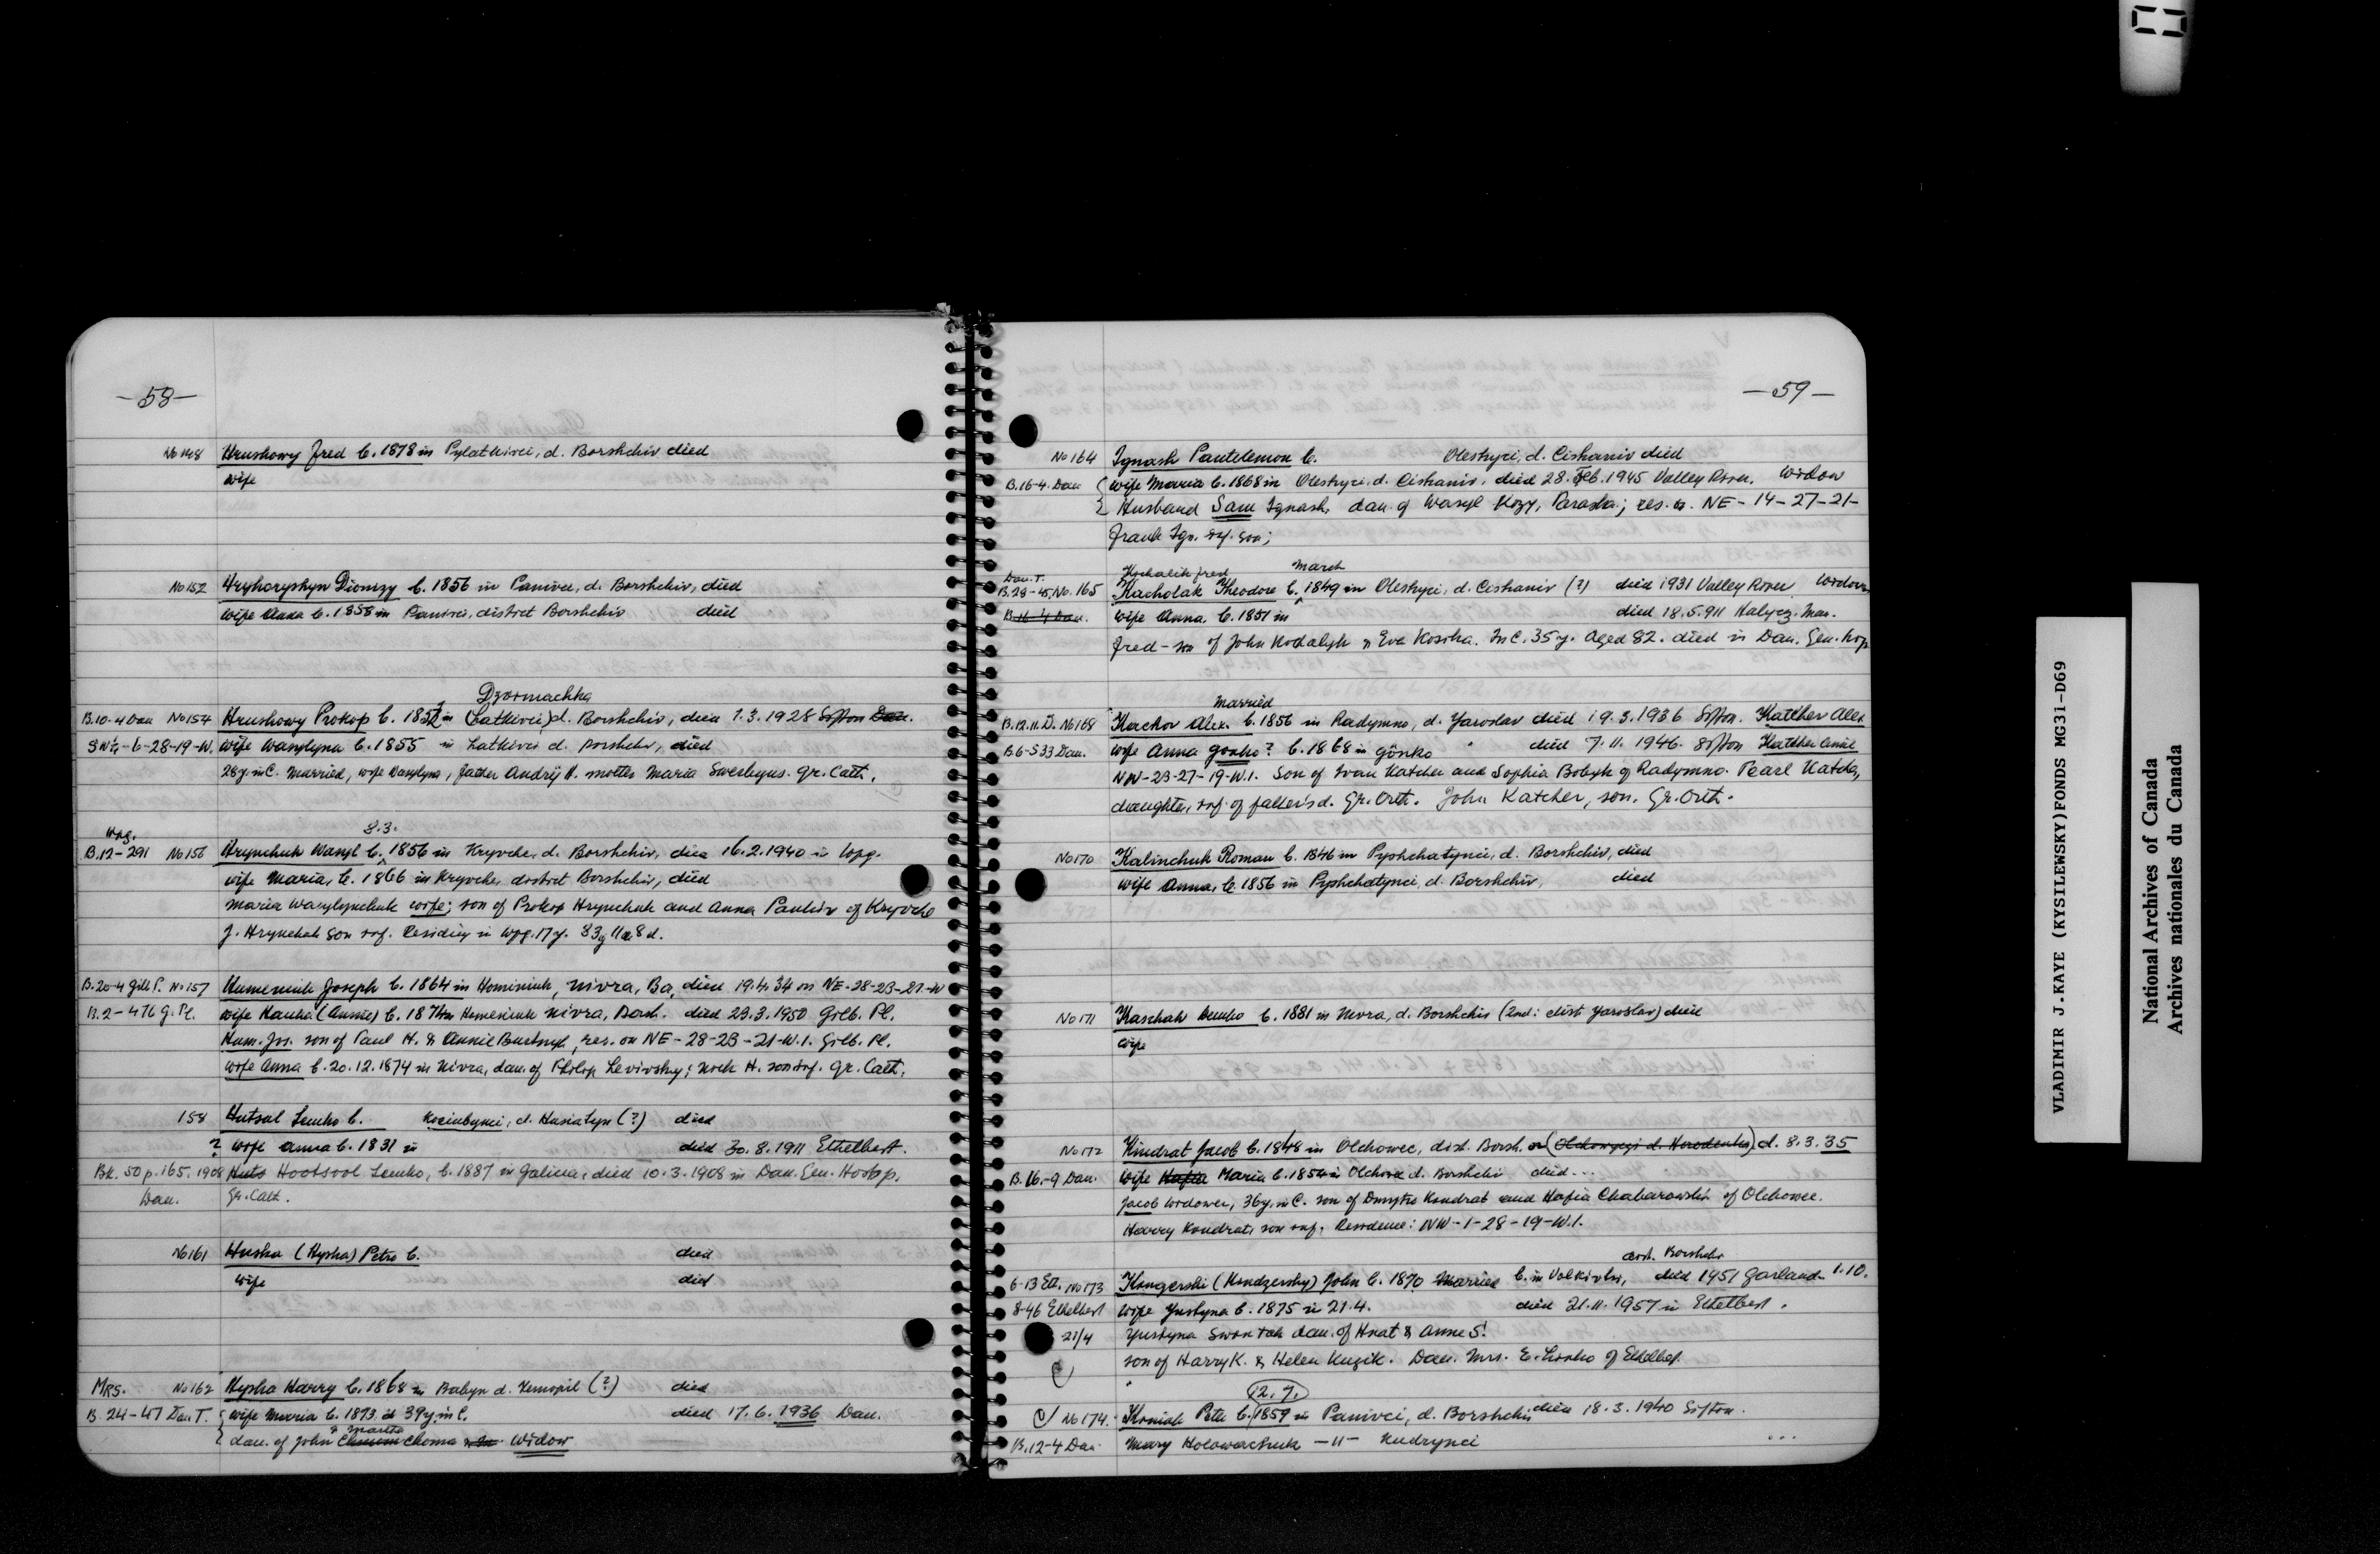 —58—
No 148 Hrushowy Fred b. 1878 in Pylatkivci, d. Borshchiv died
wife
No 152 Hryhoryshyn Dionizy b. 1856 in Panivci, d. Borshchiv, died
wife Anna b. 1858 in Panivci, district Borshchiv died
Dzviniachka
B.10-4 Dau No 154 Hrushowy Prokop b. 1852 in (Latkivci) d. Borshchiv, died 1.3.1928 Sifton Dau.
SW¼-6-28-19-W. wife Wasylyna b. 1855 in Latkivci d. Borshchiv, died
28 y. in C. Married, wife Vasylyna, father Andrij H. mother Maria Gr. Cath.
Wpg. 8.3.
B.12-291 No 156 Hrynchuk Wasyl b. 1856 in Kryvche, d. Borshchiv, died 16.2.1940 in Wpg.
wife Maria, b. 1866 in Kryvche, district Borshchiv, died
Maria Wasylynchuk wife; son of Prokop Hrynchuk and Anna Paulin of Kryvche
J. Hrynchuk son inf. Residing in Wpg. 17 y. 83 y 11 m 8 d.
B.20-4 Gilb P. No 157 Humeniuk Joseph b. 1864 in Hominiuk, Nivra, Bo, died 19.4.34 on NE-28-23-21-W
B.2-476 G. Pl. wife Hanka (Annie) b. 1874 in Humeniuk Nivra, Borsh. died 23.3.1950 Gilb. Pl.
Hum. Jos. son of Paul H. & Annie res. on NE-28-23-21-W.1. Gilb. Pl.
wife Anna b. 20.12.1874 in Nivra, dau. of Philip Levivsky; Nick H. son inf. Gr. Cath.
158 Hutsul Semko b. Kociubynci, d. Husiatyn (?) died
? wife Anna b. 1831 in died 30.8.1911 Ethelbert.
Bk. 50 p. 165. 1908 Huts Hootsool Semko, b. 1887 in Galicia, died 10.3.1908 in Dau. Gen. Hosp.
Dau. Gr. Cath.
No 161 Huska (Hyska) Petro b. died
wife died
MRS. No 162 Hypka Harry b. 1868 in Babyn d. Ternopil (?) died
B. 24-47 Dau T. wife Maria b. 1873 d 39 y. in C. died 17.6.1936 Dau.
& Martha
dau. of John Choma Widow
—59—
No 164 Ignash Pantelemon b. Oleshyci, d. Cishaniv died
B.16-4 Dau wife Maria b. 1868 in Oleshyci, d. Cishaniv, died 28. Feb. 1945 Valley River. Widow
Husband Sam Ignash, dau. of Wasyl Kozy, Paraska; res. on NE-14-27-21-
Frank Ign. inf. son;
Dau. T. Kochalik Fred March
B.28-45 No. 165 Kacholak Theodore b. 1849 in Oleshyci, d. Cishaniv (?) died 1931 Valley River Widower
B.16-4 Dau. wife Anna, b. 1851 in died 18.5.911 Halycz. Man.
Fred - son of John Kodalyk & Eva Kosika. In C. 35 y. Aged 82. died in Dau. Gen. Hosp
Married
B.12.11.D. No 168 Kachor Alex. b. 1856 in Radymno, d. Yaroslav died 19.3.1936 Sifton. Katcher Alex
B.6-533 Dau. wife Anna Gonko? b. 1868 in Gonko " died 7.11.1946. Sifton Katcher Annie
NW-23-27-19-W.1. Son of Ivan Katcher and Sophia Bobyk of Radymno. Pearl Katcher,
daughter, inf. of father's d. Gr. Orth. John Katcher, son. Gr. Orth.
No 170 Kalinchuk Roman b. 1846 in Pyshchatynci, d. Borshchiv, died
wife Anna, b. 1856 in Pyshchatynci, d. Borshchiv, died
No 171 Kaschak Semko b. 1881 in Nivra, d. Borshchiv (2nd: dist. Yaroslav) died
wife
No 172 Kindrat Jacob b. 1848 in Olchowec, dist. Borsh. or (Olchowczyk d. Horodenka) d. 8.3.35
B. 16.-9 Dau. wife Hafia Maria b. 1854 in Olchowe d. Borshchiv died...
Jacob widower, 36 y. in C. son of Dmytro Kondrat and Hafia Chabarowski of Olchowec.
Harry Kondrat, son inf. Residence: NW-1-28-19-W.1.
dist. Borshchiv
6-13 Eth. No 173 Kongerski (Kondzersky) John b. 1870 Married b. in Volkivtsi, died 1951 Garland 1.10.
8-46 Ethelbert wife Yustyna b. 1875 in 21.4. died 21.11.1957 in Ethelbert.
21/4 Yustyna dau. of Hnat & Anne S.
son of Harry K. & Helen Kuzik. Dau. Mrs. E. of Ethelbert.
12.7.
No 174. Koniak Peter b. 1859 in Panivci, d. Borshchiv died 18.3.1940 Sifton.
B.12-4 Dau. Mary Holowachuk —"— Kudrynci ...
VLADIMIR J.KAYE (KYSILEWSKY)FONDS MG31-D69
National Archives of Canada
Archives nationales du Canada